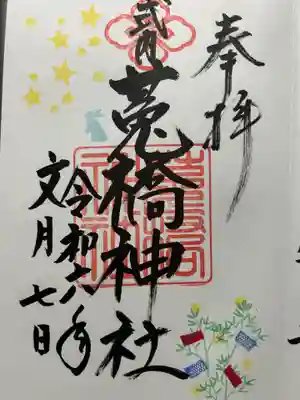 奉拝
式内
莵橋神社
令和六年
文月七日